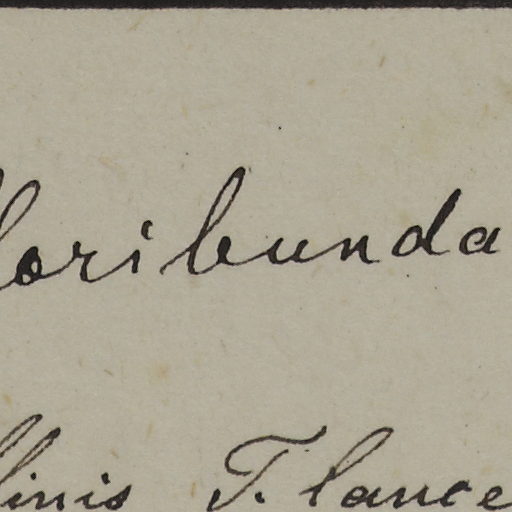 loribunda
finis T. lance